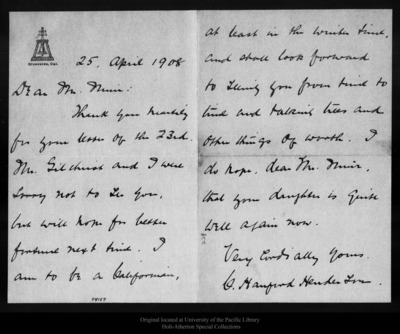 Riverside, Cal.
25, April 1908
Dear Mr. Muir:
Thank you heartily
for your letter of the 23rd.
Mr. Gilchrist and I were
sorry not to see you,
but will hope for better
fortune next time. I
am to be a Californian,
04127
at least in the winter time,
and shall look forward
to seeing you from time to
time and talking trees and
other things of worth. I
do hope, dear Mr. Muir,
that your daughter is quite
well again now.
Very cordially yours,
C. Hanford Henderson.
Original located at University of the Pacific Library
Holt-Atherton Special Collections